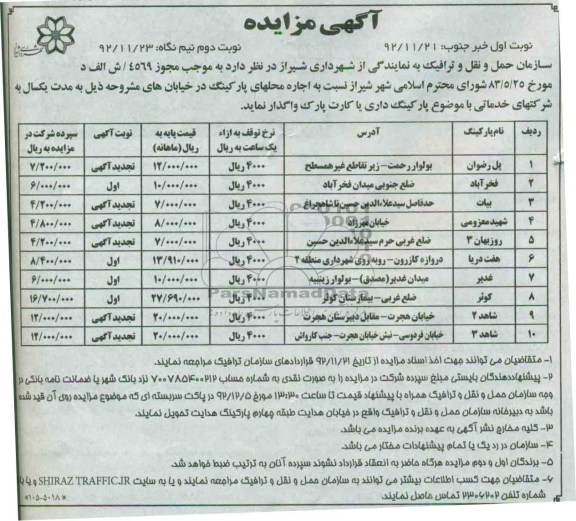 آگهی مزایده
نوبت اول خبر جنوب: ۹۲/۱۱/۲۱
نوبت دوم نیم نگاه: ۹۲/۱۱/۲۳
سازمان حمل و نقل و ترافیک به نمایندگی از شهرداری شیراز در نظر دارد به موجب مجوز ۴۵۶۹/ش الف د
مورخ ۸۳/۵/۲۵ شورای محترم اسلامی شهر شیراز نسبت به اجاره محلهای پارکینگ در خیابان های مشروحه ذیل به مدت یکسال به
شرکتهای خدماتی با موضوع پارکینگ داری یا کارت پارک واگذار نماید.
ردیف نام پارکینگ آدرس نرخ توقف به ازاء یک ساعت به ریال قیمت پایه به ریال (ماهانه) نوبت آگهی سپرده شرکت در مزایده به ریال
۱ پل رضوان بولوار رحمت - زیر تقاطع غیر همسطح ۴۰۰۰ ریال ۱۲/۰۰۰/۰۰۰ تجدید آگهی ۷/۲۰۰/۰۰۰
۲ فخرآباد ضلع جنوبی میدان فخرآباد ۴۰۰۰ ریال ۱۰/۰۰۰/۰۰۰ اول ۶/۰۰۰/۰۰۰
۳ بیات حدفاصل سیدعلاءالدین حسین تا شاهچراغ ۴۰۰۰ ریال ۷/۰۰۰/۰۰۰ تجدید آگهی ۴/۲۰۰/۰۰۰
۴ شهید معزومی خیابان قهرزاد ۴۰۰۰ ریال ۸/۰۰۰/۰۰۰ تجدید آگهی ۴/۸۰۰/۰۰۰
۵ روزبهان ۳ ضلع غربی حرم سیدعلاءالدین حسین ۴۰۰۰ ریال ۷/۰۰۰/۰۰۰ تجدید آگهی ۴/۲۰۰/۰۰۰
۶ هفت دریا دروازه کازرون - روبه روی شهرداری منطقه ۲ ۴۰۰۰ ریال ۱۳/۹۱۰/۰۰۰ اول ۸/۴۰۰/۰۰۰
۷ غدیر میدان غدیر (مصدق) - بولوار زینبیه ۴۰۰۰ ریال ۱۰/۰۰۰/۰۰۰ اول ۶/۰۰۰/۰۰۰
۸ کوثر ضلع غربی - بیمارستان کوثر ۴۰۰۰ ریال ۲۷/۶۹۰/۰۰۰ اول ۱۶/۷۰۰/۰۰۰
۹ شاهد ۲ خیابان هجرت - مقابل دبیرستان هجرت ۴۰۰۰ ریال ۲۰/۰۰۰/۰۰۰ تجدید آگهی ۱۲/۰۰۰/۰۰۰
۱۰ شاهد ۳ خیابان فردوسی - نبش خیابان هجرت - جنب کارواش ۴۰۰۰ ریال ۲۰/۰۰۰/۰۰۰ تجدید آگهی ۱۲/۰۰۰/۰۰۰
۱- متقاضیان می توانند جهت اخذ اسناد مزایده از تاریخ ۹۲/۱۱/۲۱ قراردادهای سازمان ترافیک مراجعه نمایند.
۲- پیشنهاددهندگان بایستی مبلغ سپرده شرکت در مزایده را به صورت نقدی به شماره حساب ۷۰۰۷۸۵۴۰۰۲۱۲ نزد بانک شهر یا ضمانت نامه بانکی در
وجه سازمان حمل و نقل و ترافیک همراه با پیشنهاد قیمت تا ساعت ۱۳:۳۰ مورخ ۹۲/۱۲/۵ در پاکت سربسته ای که موضوع مزایده روی آن قید شده
باشد به دبیرخانه سازمان حمل و نقل و ترافیک واقع در خیابان هدایت طبقه چهارم پارکینگ هدایت تحویل نمایند.
۳- کلیه مخارج نشر آگهی به عهده برنده مزایده می باشد.
۴- سازمان در رد یک یا تمام پیشنهادات مختار می باشد.
۵- برندگان اول و دوم مزایده هرگاه حاضر به انعقاد قرارداد نشوند سپرده آنان به ترتیب ضبط خواهد شد.
۶- متقاضیان جهت کسب اطلاعات بیشتر می توانند به سازمان حمل و نقل و ترافیک مراجعه نمایند و یا به سایت SHIRAZ TRAFFIC.IR و یا با
شماره تلفن ۲۳۰۶۲۰۲ تماس حاصل نمایند.
۶۱۰۵-۵۰۱۸
ParsNamadData